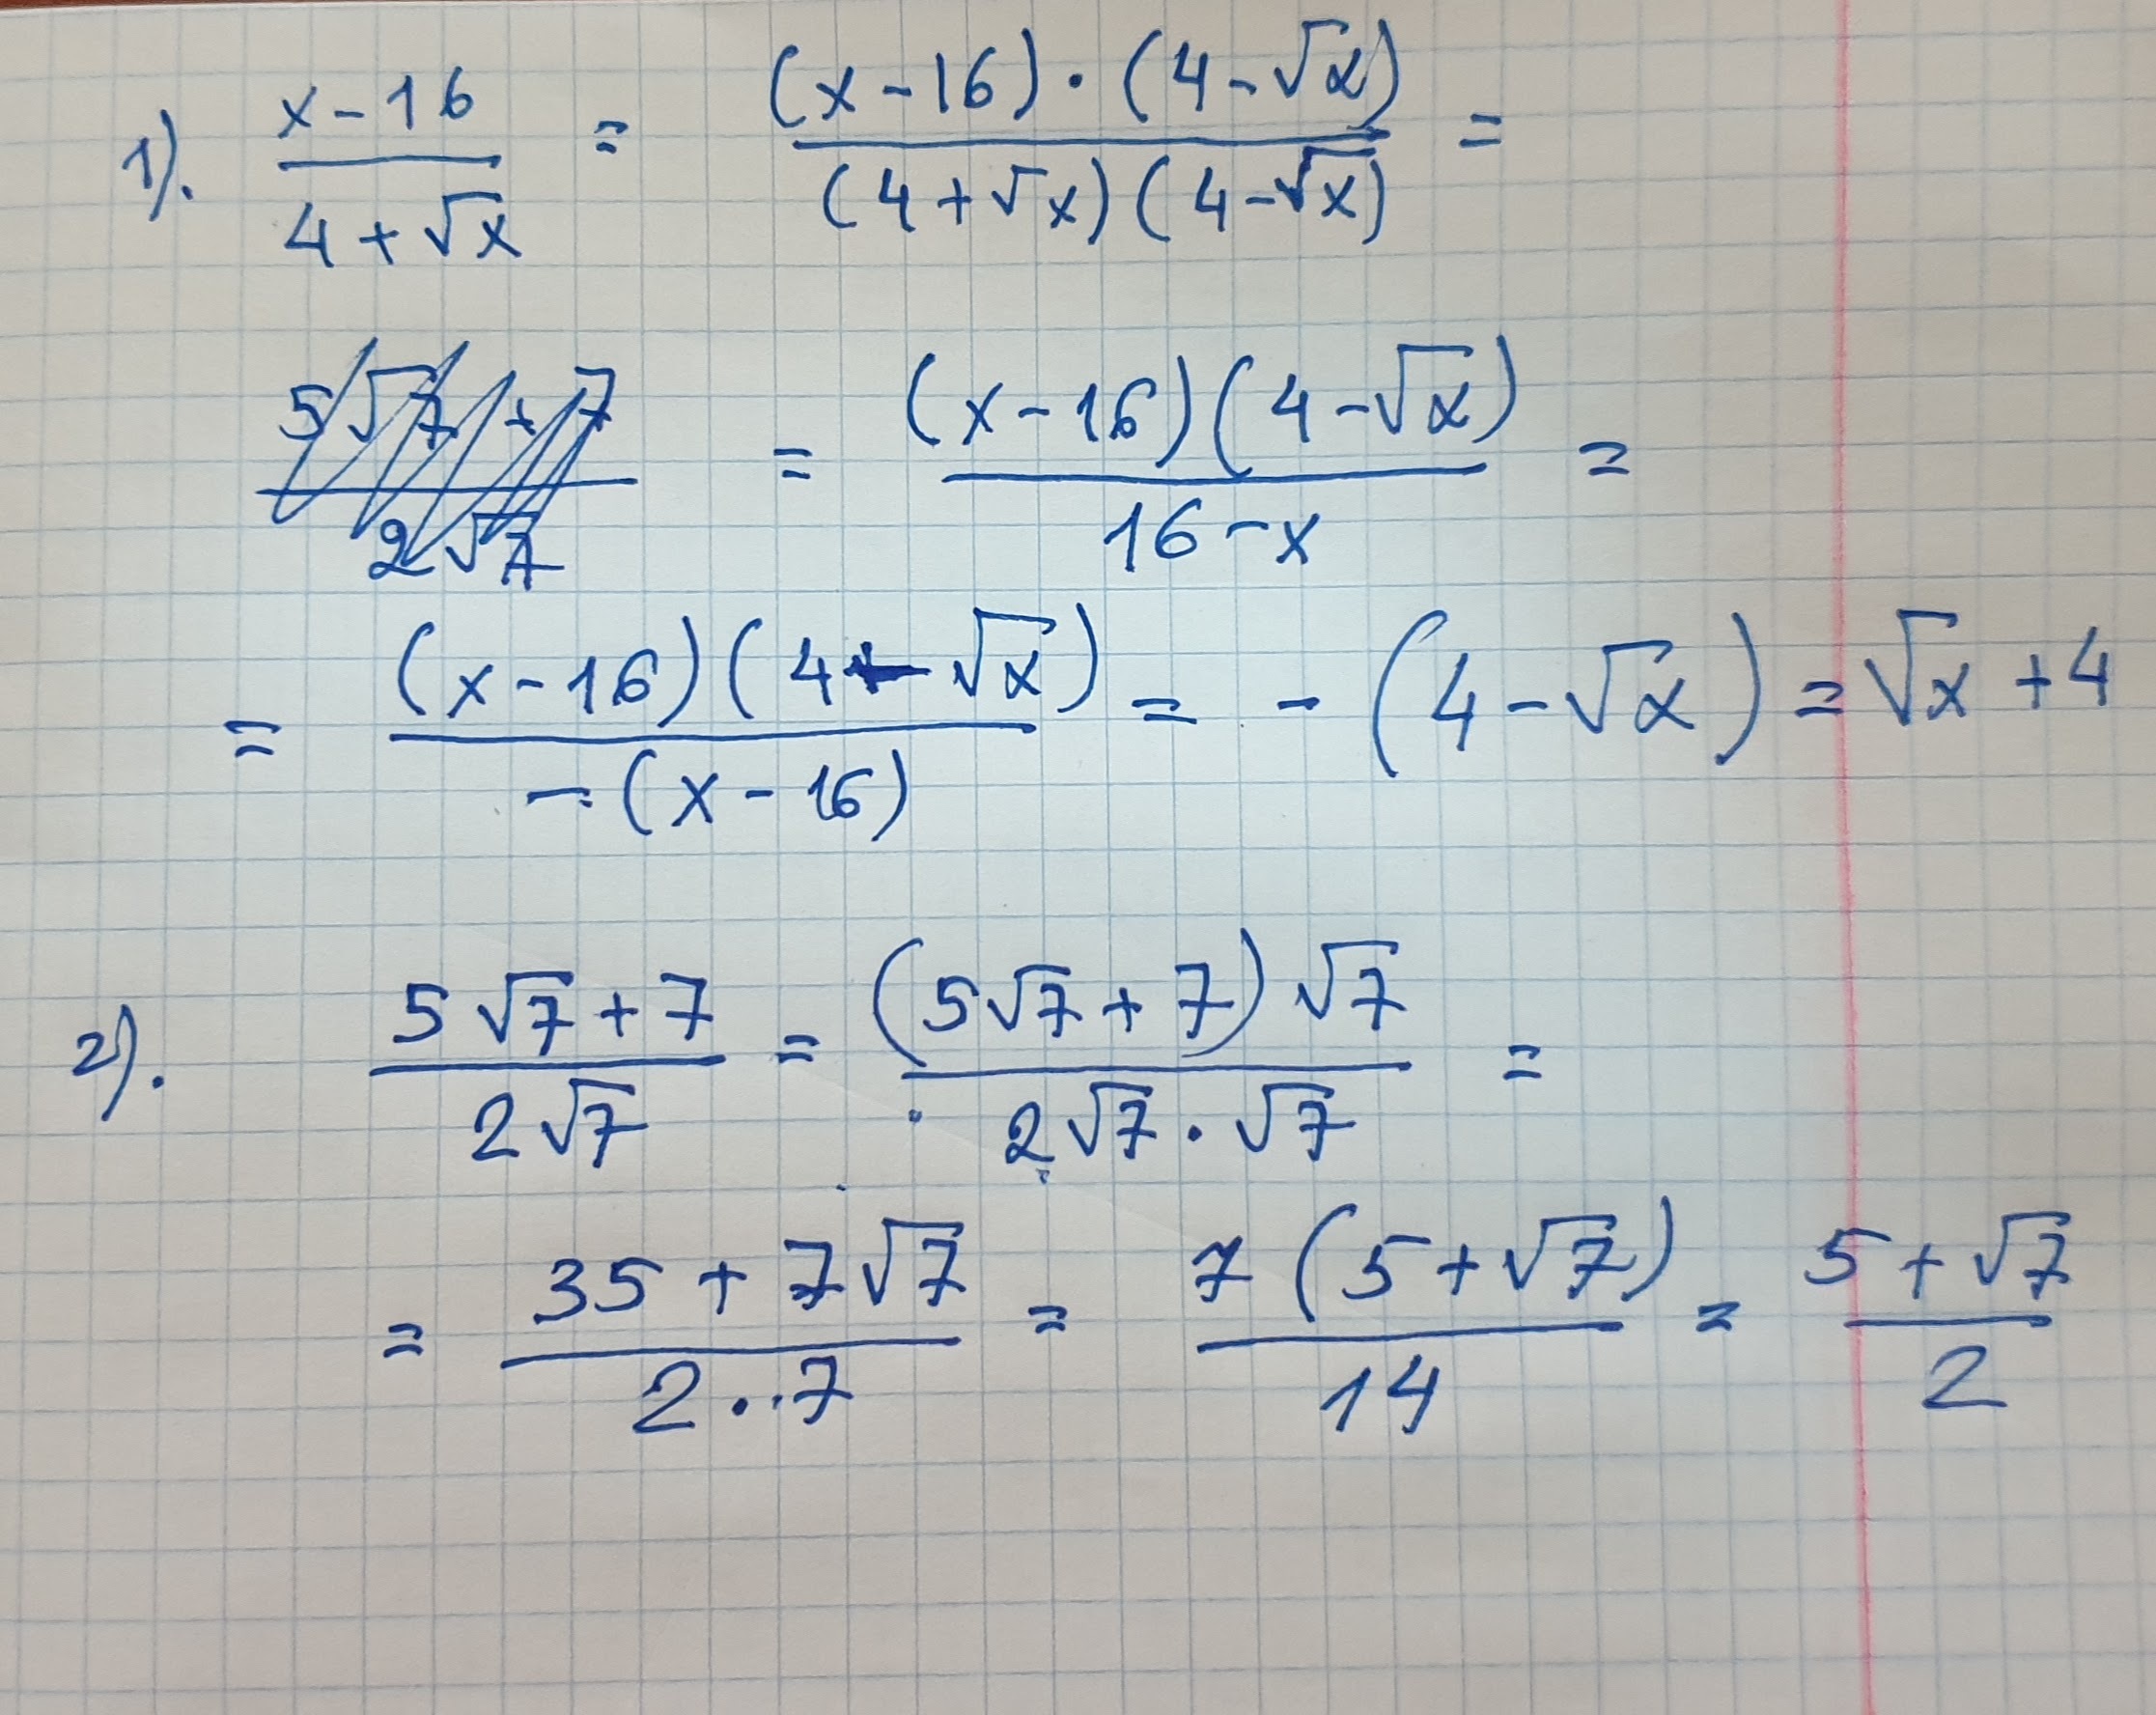 1). (x-16)/(4+√x) = ((x-16)·(4-√x))/((4+√x)(4-√x)) =
(5√7+7)/(2√7) = ((x-16)(4-√x))/(16-x) =
= ((x-16)(4-√x))/(-(x-16)) = -(4-√x) = √x+4
2). (5√7+7)/(2√7) = ((5√7+7)√7)/(2√7·√7) =
= (35+7√7)/(2·7) = (7(5+√7))/14 = (5+√7)/2